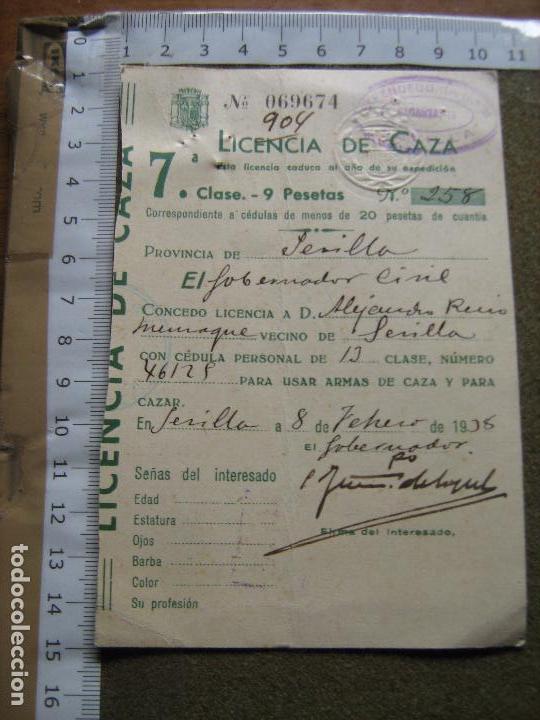 Nº 069674
904
LICENCIA DE CAZA
Esta licencia caduca al año de su expedición
7.ª Clase. - 9 Pesetas N.º 258
Correspondiente a cédulas de menos de 20 pesetas de cuantía
PROVINCIA DE Sevilla
El Gobernador Civil
CONCEDO LICENCIA A D. Alejandro
VECINO DE Sevilla
CON CÉDULA PERSONAL DE 13 CLASE, NÚMERO
PARA USAR ARMAS DE CAZA Y PARA
CAZAR.
En Sevilla a 8 de Febrero de 1938
El Gobernador
Señas del interesado
Edad
Estatura
Ojos
Barba
Color
Su profesión
Firma del interesado,
LICENCIA DE CAZA
0 1 2 3 4 5 6 7 8 9 10 11
0 1 2 3 4 5 6 7 8 9 10 11 12 13 14 15 16
todocoleccion.net